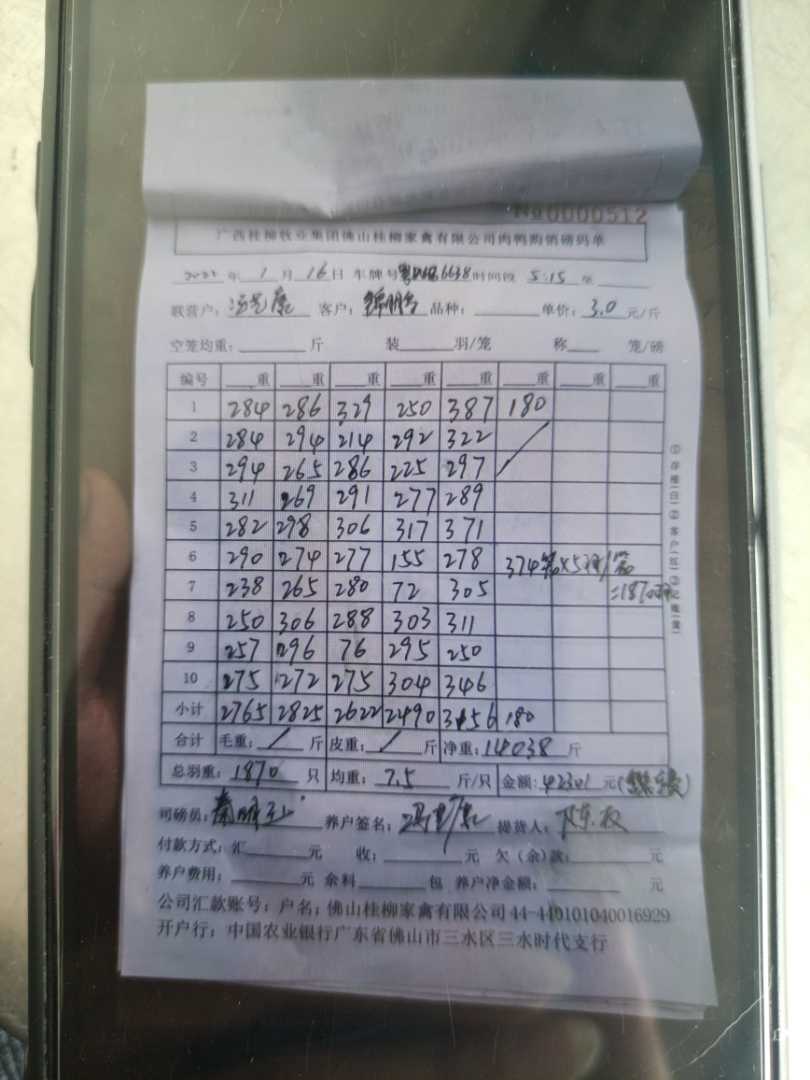 No 0000512
广西桂柳牧业集团佛山桂柳家禽有限公司肉鸭购销磅码单
2022 年 1 月 16 日 车牌号 6638 时间段 5:15 至
联营户: 客户: 品种: 单价: 3.0 元/斤
空笼均重: 斤 装 羽/笼 称 笼/磅
编号 重 重 重 重 重 重 重 重
1 284 286 329 250 387 180
2 284 294 214 292 322
3 294 265 286 225 297
4 311 269 291 277 289
5 282 298 306 317 371
6 290 274 277 155 278 374笼×5羽/笼
7 238 265 280 72 305 =1870羽
8 250 306 288 303 311
9 257 296 76 295 250
10 275 272 275 304 346
小计 2765 2825 2622 2490 3156 180
合计 毛重: / 斤 皮重: / 斤 净重: 14038 斤
总羽重: 1870 只 均重: 7.5 斤/只 金额: 42301 元
司磅员: 养户签名: 提货人:
付款方式: 汇 元 收: 元 欠(余)款: 元
养户费用: 元 余料 包 养户净金额: 元
公司汇款账号: 户名: 佛山桂柳家禽有限公司 44-440101040016929
开户行: 中国农业银行广东省佛山市三水区三水时代支行